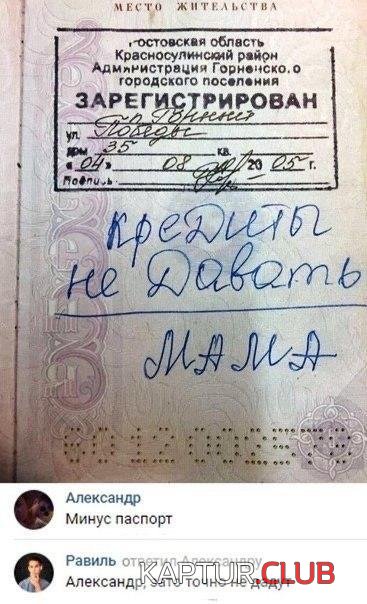 МЕСТО ЖИТЕЛЬСТВА
Ростовская область
Красносулинский район
Администрация Горненского
городского поселения
ЗАРЕГИСТРИРОВАН
п. Горный
ул. Победы
дом 35 кв.
«04» 08 2005 г.
Подпись
кредиты
не давать
МАМА
Александр
Минус паспорт
Равиль ответил Александру
Александр, зато точно не дадут
KAPTUR.CLUB